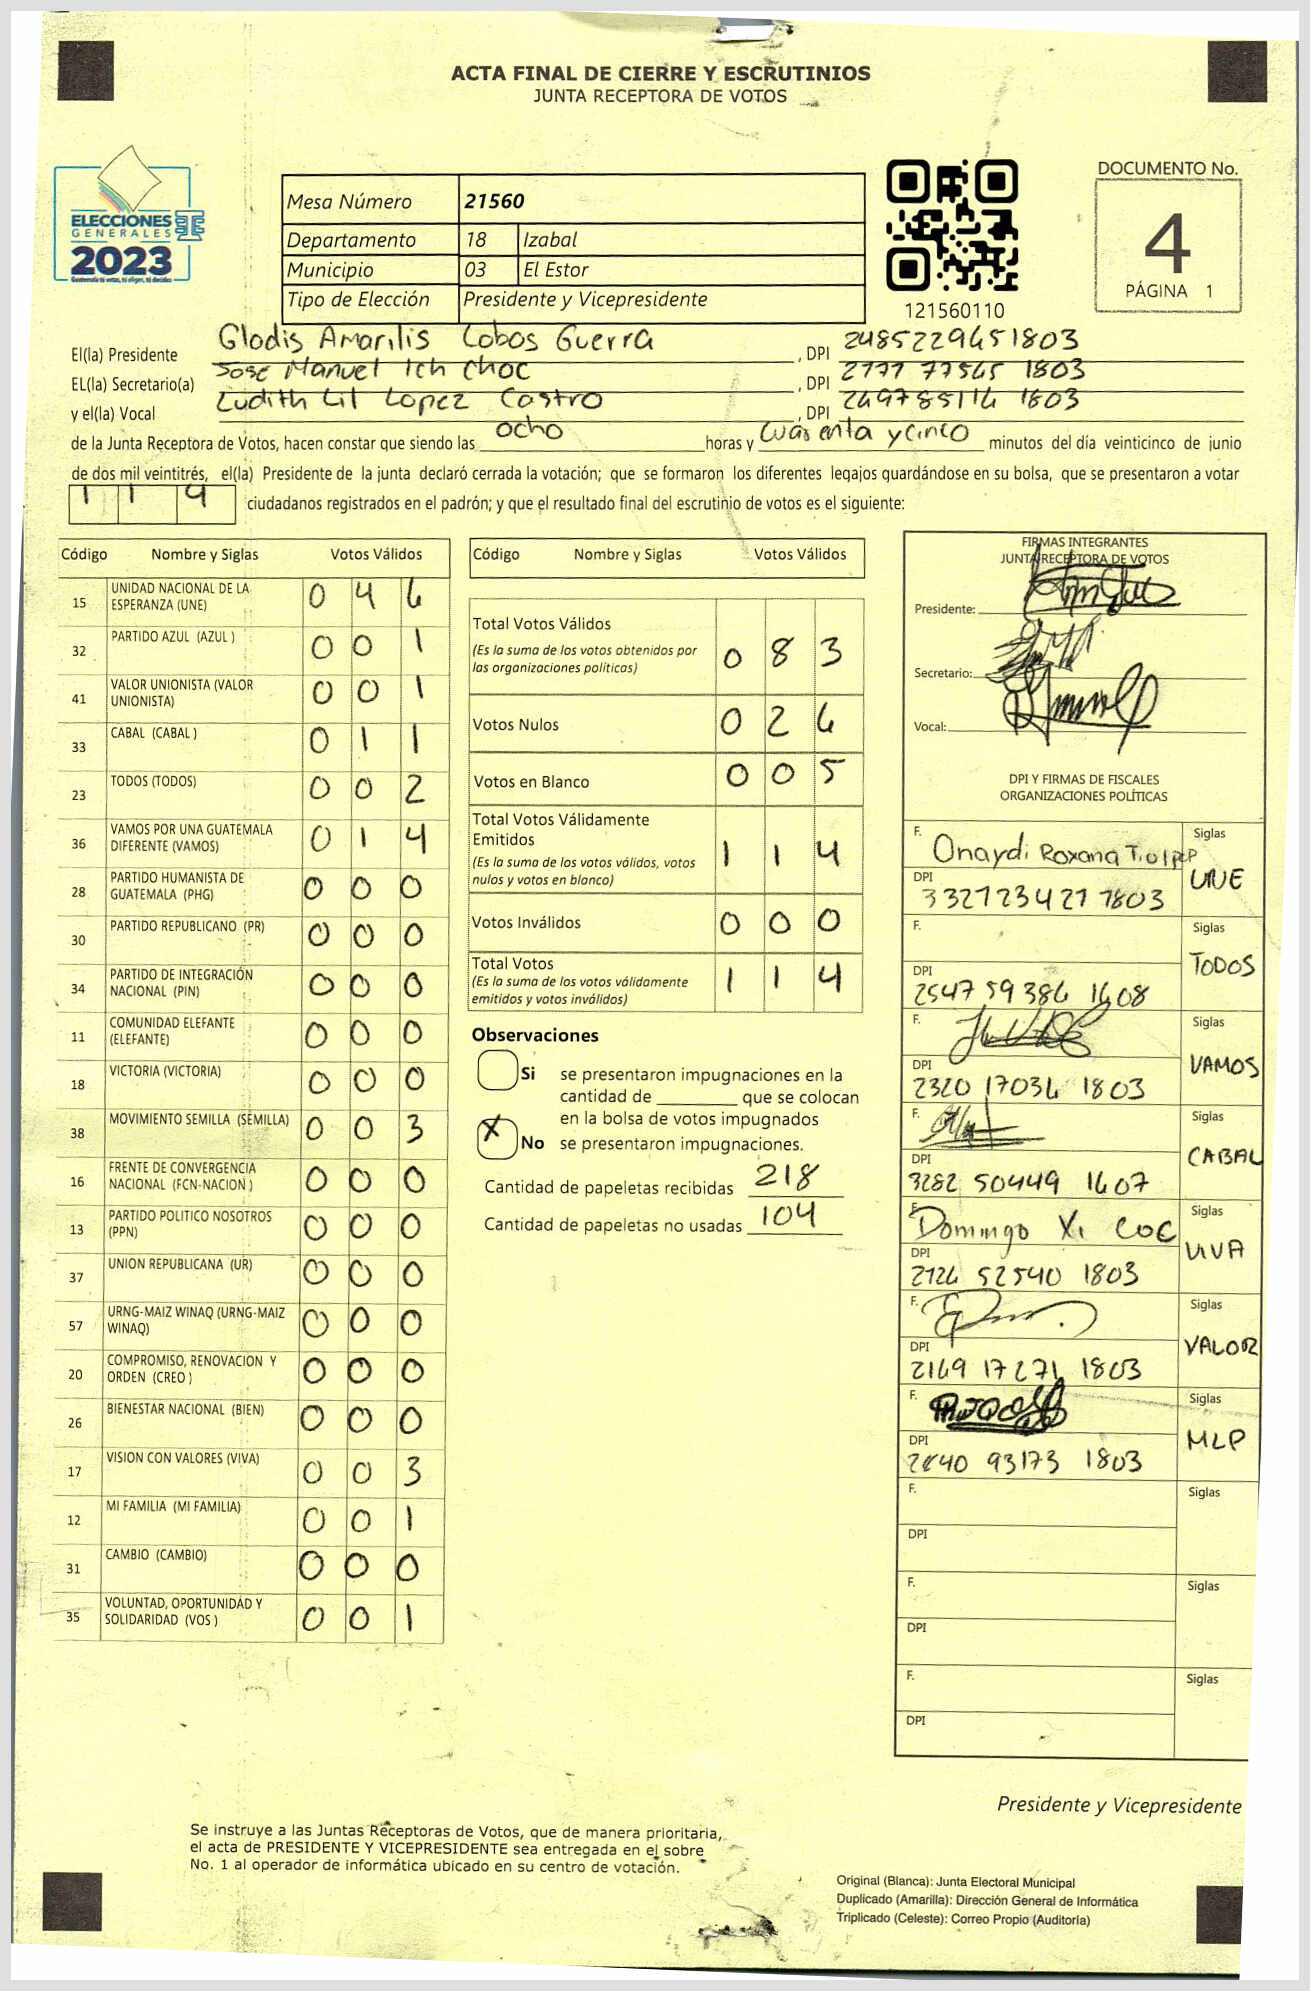 ACTA FINAL DE CIERRE Y ESCRUTINIOS
JUNTA RECEPTORA DE VOTOS
ELECCIONES
GENERALES
2023
Mesa Número 21560
Departamento 18 Izabal
Municipio 03 El Estor
Tipo de Elección Presidente y Vicepresidente
121560110
DOCUMENTO No.
4
PÁGINA 1
El(la) Presidente Gladis Amarilis Lobos Guerra, DPI 2485229651803
EL(la) Secretario(a) Jose Manuel Ich Choc, DPI 2777 77565 1803
y el(la) Vocal Ludith Lil Lopez Castro, DPI 249785116 1803
de la Junta Receptora de Votos, hacen constar que siendo las ocho horas y Cuarenta y cinco minutos del día veinticinco de junio
de dos mil veintitrés, el(la) Presidente de la junta declaró cerrada la votación; que se formaron los diferentes legajos guardándose en su bolsa, que se presentaron a votar
114 ciudadanos registrados en el padrón; y que el resultado final del escrutinio de votos es el siguiente:
Código Nombre y Siglas Votos Válidos
15 UNIDAD NACIONAL DE LA ESPERANZA (UNE) 0 4 6
32 PARTIDO AZUL (AZUL ) 0 0 1
41 VALOR UNIONISTA (VALOR UNIONISTA) 0 0 1
33 CABAL (CABAL ) 0 1 1
23 TODOS (TODOS) 0 0 2
36 VAMOS POR UNA GUATEMALA DIFERENTE (VAMOS) 0 1 4
28 PARTIDO HUMANISTA DE GUATEMALA (PHG) 0 0 0
30 PARTIDO REPUBLICANO (PR) 0 0 0
34 PARTIDO DE INTEGRACIÓN NACIONAL (PIN) 0 0 0
11 COMUNIDAD ELEFANTE (ELEFANTE) 0 0 0
18 VICTORIA (VICTORIA) 0 0 0
38 MOVIMIENTO SEMILLA (SEMILLA) 0 0 3
16 FRENTE DE CONVERGENCIA NACIONAL (FCN-NACION ) 0 0 0
13 PARTIDO POLITICO NOSOTROS (PPN) 0 0 0
37 UNION REPUBLICANA (UR) 0 0 0
57 URNG-MAIZ WINAQ (URNG-MAIZ WINAQ) 0 0 0
20 COMPROMISO, RENOVACION Y ORDEN (CREO ) 0 0 0
26 BIENESTAR NACIONAL (BIEN) 0 0 0
17 VISION CON VALORES (VIVA) 0 0 3
12 MI FAMILIA (MI FAMILIA) 0 0 1
31 CAMBIO (CAMBIO) 0 0 0
35 VOLUNTAD, OPORTUNIDAD Y SOLIDARIDAD (VOS ) 0 0 1
Código Nombre y Siglas Votos Válidos
Total Votos Válidos 0 8 3
(Es la suma de los votos obtenidos por
las organizaciones políticas)
Votos Nulos 0 2 6
Votos en Blanco 0 0 5
Total Votos Válidamente
Emitidos 1 1 4
(Es la suma de los votos válidos, votos
nulos y votos en blanco)
Votos Inválidos 0 0 0
Total Votos 1 1 4
(Es la suma de los votos válidamente
emitidos y votos inválidos)
Observaciones
Si se presentaron impugnaciones en la
cantidad de ________ que se colocan
en la bolsa de votos impugnados
X No se presentaron impugnaciones.
Cantidad de papeletas recibidas 218
Cantidad de papeletas no usadas 104
FIRMAS INTEGRANTES
JUNTA RECEPTORA DE VOTOS
Presidente:
Secretario:
Vocal:
DPI Y FIRMAS DE FISCALES
ORGANIZACIONES POLÍTICAS
F. Onaydi Roxana Siglas
DPI 332723427 1803 UNE
F. Siglas
DPI 2547 59386 1608 TODOS
F. Siglas
DPI 2320 17036 1803 VAMOS
F. Siglas
DPI 3282 50449 1607 CABAL
F. Domingo Xi COC Siglas
DPI 2126 52540 1803 VIVA
F. Siglas
DPI 2169 17271 1803 VALOR
F. Siglas
DPI 93173 1803 MLP
F. Siglas
DPI
F. Siglas
DPI
F. Siglas
DPI
Presidente y Vicepresidente
Se instruye a las Juntas Receptoras de Votos, que de manera prioritaria,
el acta de PRESIDENTE Y VICEPRESIDENTE sea entregada en el sobre
No. 1 al operador de informática ubicado en su centro de votación.
Original (Blanca): Junta Electoral Municipal
Duplicado (Amarilla): Dirección General de Informática
Triplicado (Celeste): Correo Propio (Auditoría)